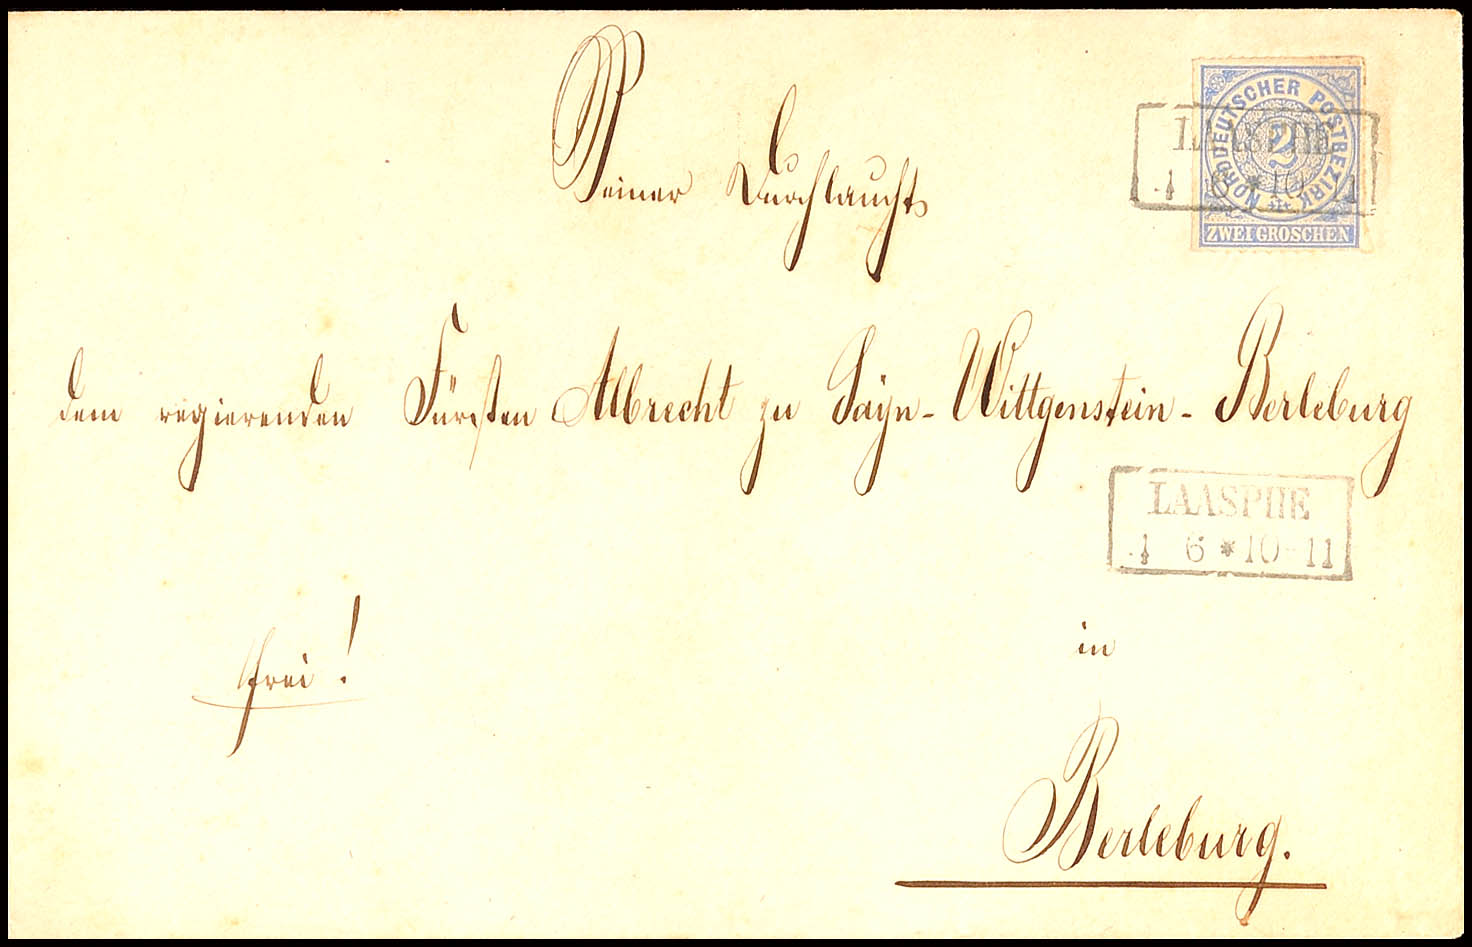 Seiner Durchlaucht
NORDDEUTSCHER POSTBEZIRK
2
ZWEI GROSCHEN
LAASPHE
4 6 * 10 11
dem regierenden Fürsten Albrecht zu Sayn-Wittgenstein-Berleburg
LAASPHE
4 6 * 10-11
frei!
in
Berleburg.